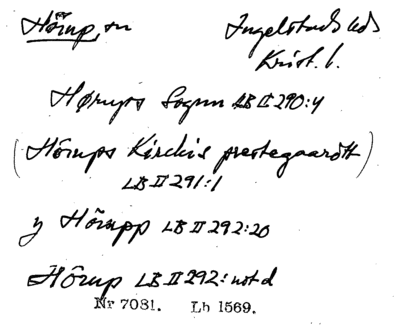 Hörup, sn Ingelstads hd
Krist. l.
Hørups Sognn LB II 290:4
(Hörups Kirckis prestegaardtt)
LB II 291:1
y Hörupp LB II 292:20
Hörup LB II 292: not d
Nr 7081. Lb 1569.